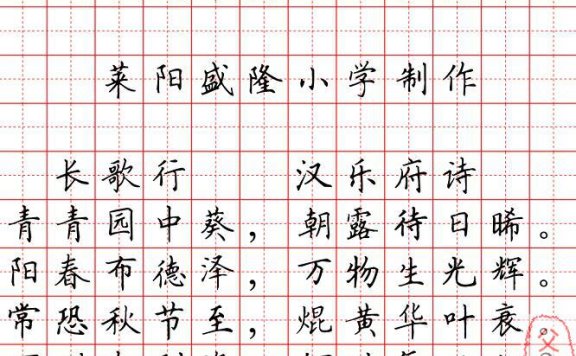 莱阳盛隆小学制作
长歌行 汉乐府诗
青青园中葵，朝露待日晞。
阳春布德泽，万物生光辉。
常恐秋节至，焜黄华叶衰。
父